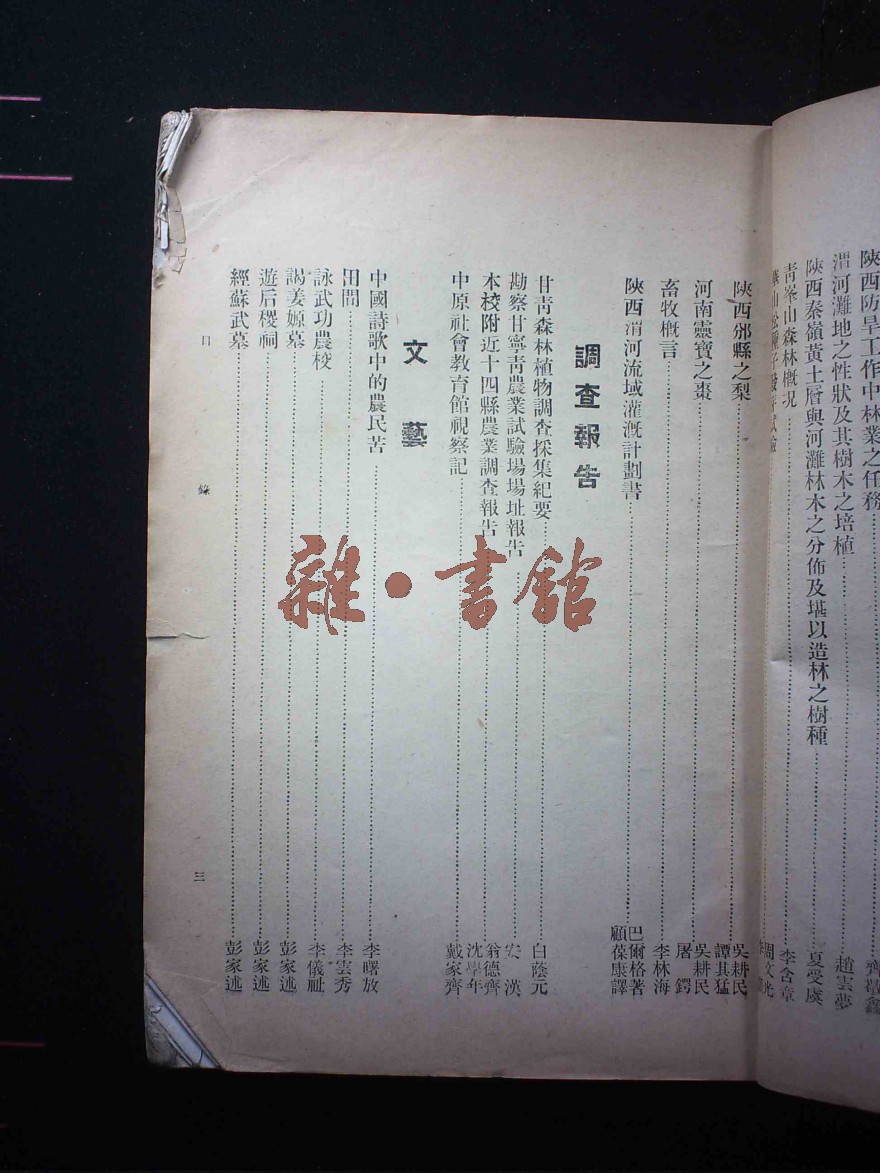 陝西防旱工作中林業之任務
渭河灘地之性狀及其樹木之培植……趙雲夢
陝西秦嶺黃土層與河灘林木之分佈及堪以造林之樹種……夏受虞
青峯山森林概況……李含章
陝西邠縣之梨……吳耕民 譚其猛
河南靈寶之棗……吳耕民 屠鍔
畜牧概言……李林海
陝西渭河流域灌漑計劃書……巴爾格著 顧葆康譯
調查報告
甘青森林植物調查採集紀要……白蔭元
勘察甘寧青農業試驗場場址報告……安漢
本校附近十四縣農業調查報告……翁德齊 沈學年
中原社會教育館視察記……戴家齊
文藝
中國詩歌中的農民苦……李曙放
田間……李雲秀
詠武功農校……李儀祉
謁姜嫄墓……彭家述
遊后稷祠……彭家述
經蘇武墓……彭家述
目錄
三
雜·書館